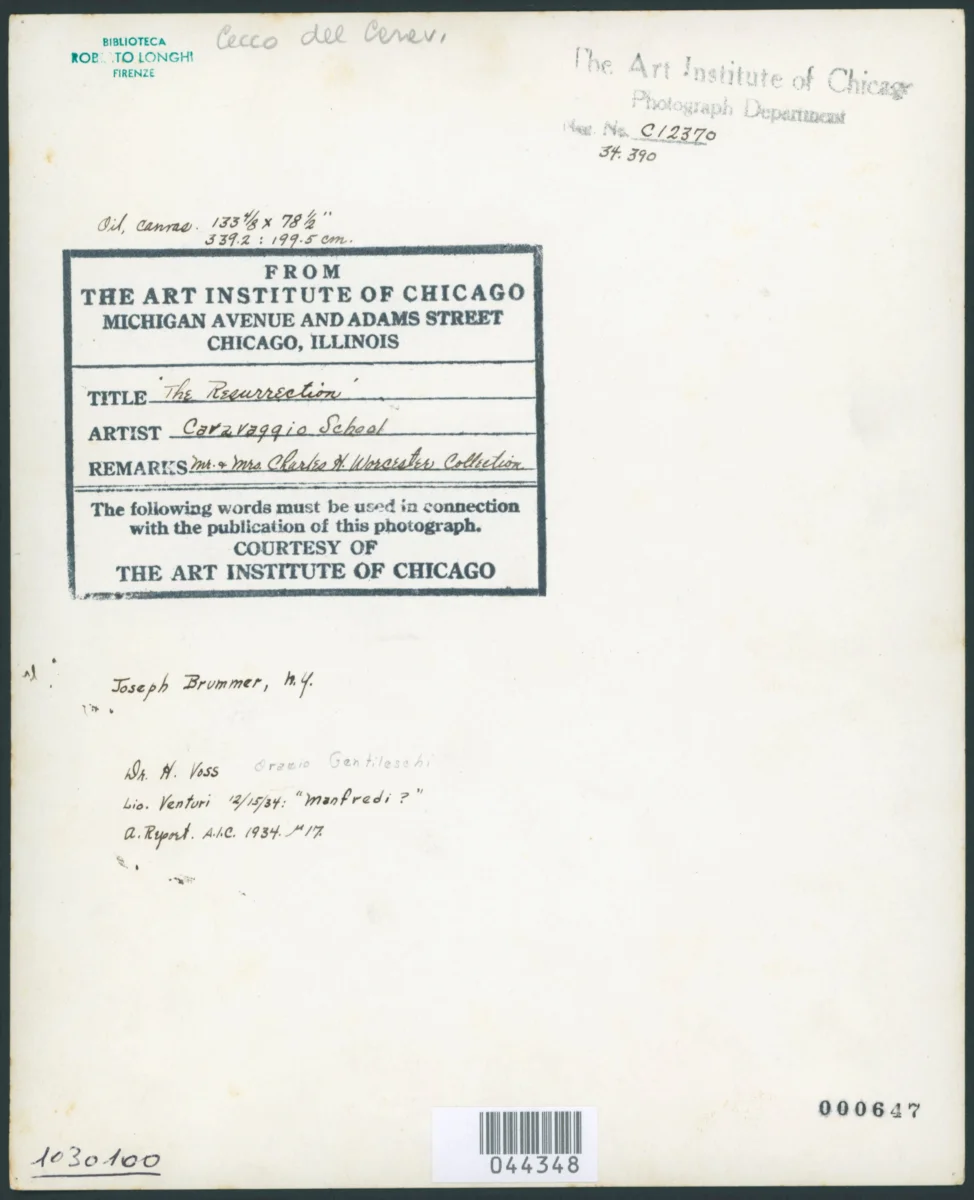 BIBLIOTECA
ROB TO LONGHI
FIRENZE
Cecco del Carav.
The Art Institute of Chicago
Photograph Department
Neg. No. C12370
34.390
Oil, canvas. 133 4/8 x 78 1/2"
339.2 : 199.5 cm.
FROM
THE ART INSTITUTE OF CHICAGO
MICHIGAN AVENUE AND ADAMS STREET
CHICAGO, ILLINOIS
TITLE 'The Resurrection'
ARTIST Caravaggio School
REMARKS Mr. + Mrs. Charles H. Worcester Collection
The following words must be used in connection
with the publication of this photograph.
COURTESY OF
THE ART INSTITUTE OF CHICAGO
Joseph Brummer, N.Y.
Dr. H. Voss Orazio Gentileschi
Lio. Venturi 12/15/34: "Manfredi?"
A. Report. A.I.C. 1934. 17.
000647
044348
1030100